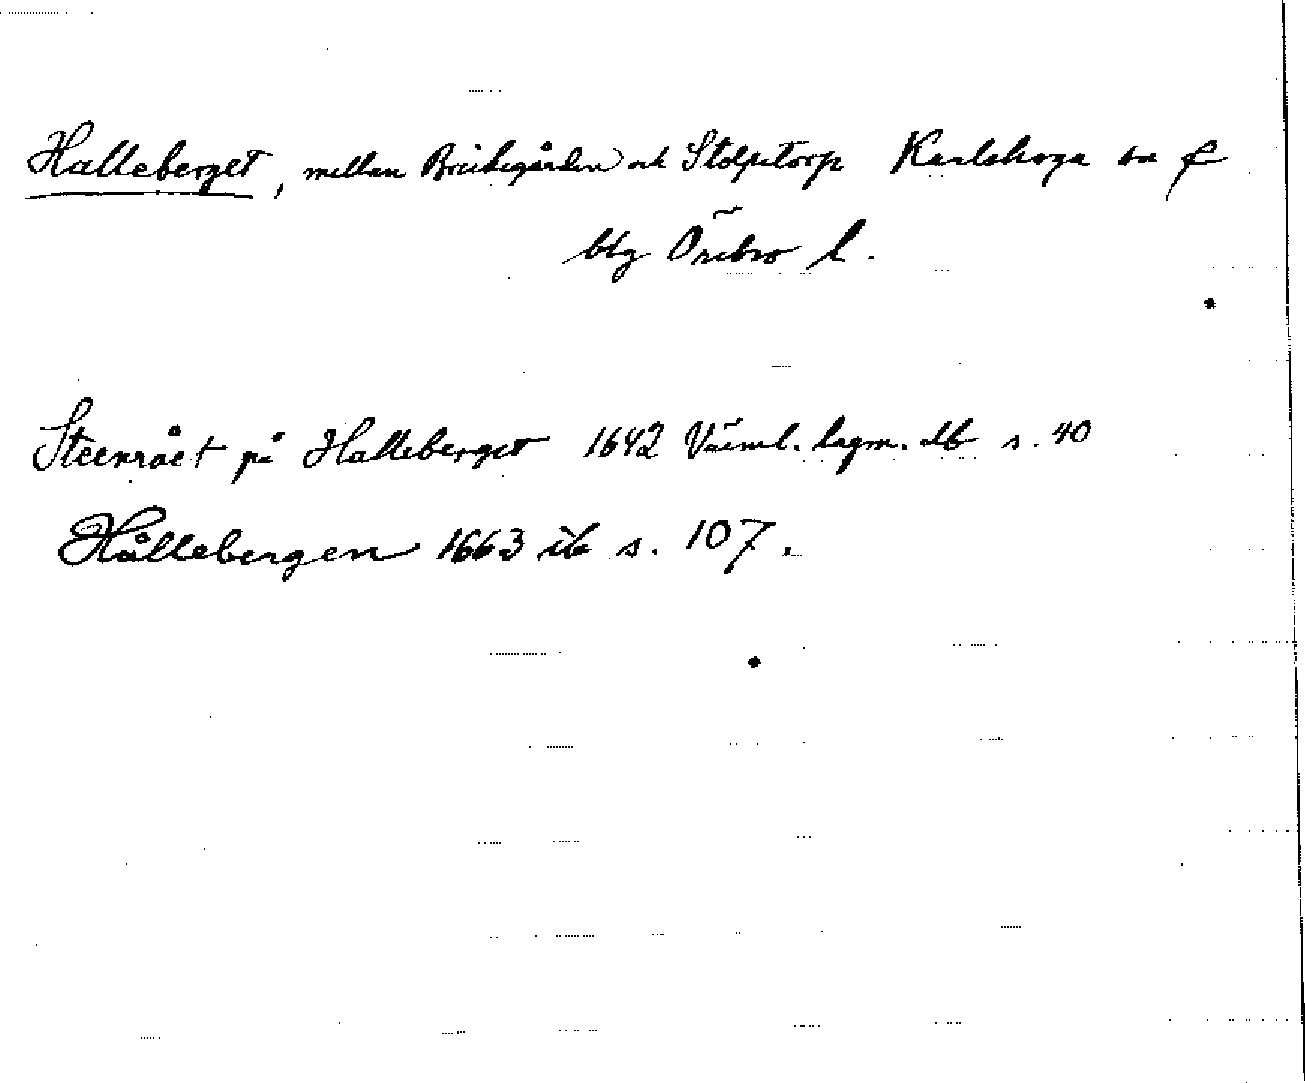 Halleberget, mellan Brickegården och Stolpetorp Karlskoga sn f
btg Örebro l.
Steenrået på Halleberget 1642 Värml. lagm. db s. 40
Hållebergen 1663 ib s. 107.